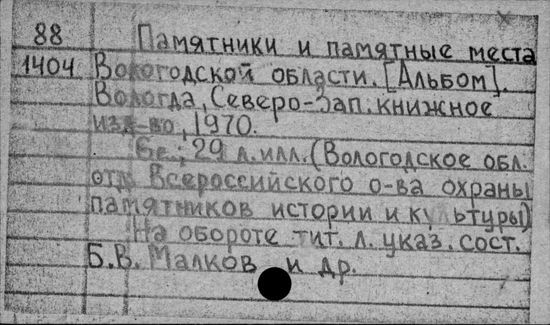 88 Памятники и памятные места
1404 Вологодской области. [Альбом].
Вологда, Северо-Зап. книжное
изд-во, 1970.
6с.; 29 л. илл. (Вологодское обл.
отд. Всероссийского о-ва охраны
памятников истории и культуры)
На обороте тит. л. указ. сост.
Б.В. Малков и др.